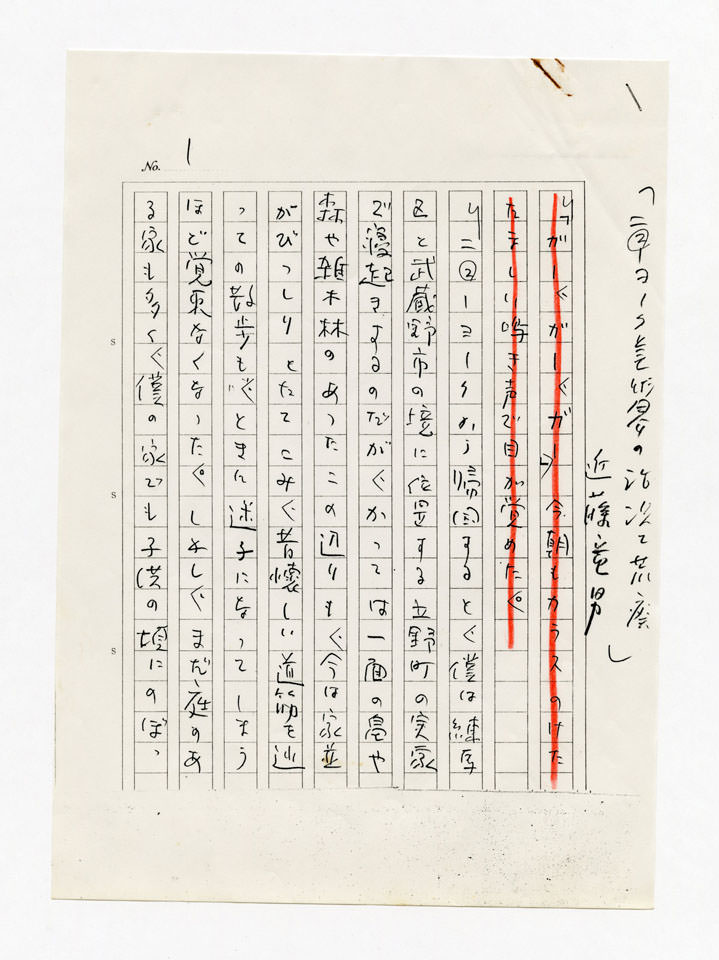 「ニューヨーク美術界の
近藤竜男
No. 1
「ガー、ガー、ガー」今朝もカラスのけた
たましい鳴き声で目が覚めた。
ニューヨークから帰国すると、僕は練馬
区と武蔵野市の境に位置する立野町の実家
で寝起きするのだが、かつては一面の畠や
森や雑木林のあったこの辺りも、今は家並
がびっしりとたてこみ、昔懐しい道筋を辿
っての散歩も、ときに迷子になってしまう
ほど覚束なくなった。しかし、まだ庭のあ
る家も多く、僕の家でも子供の頃にのぼっ